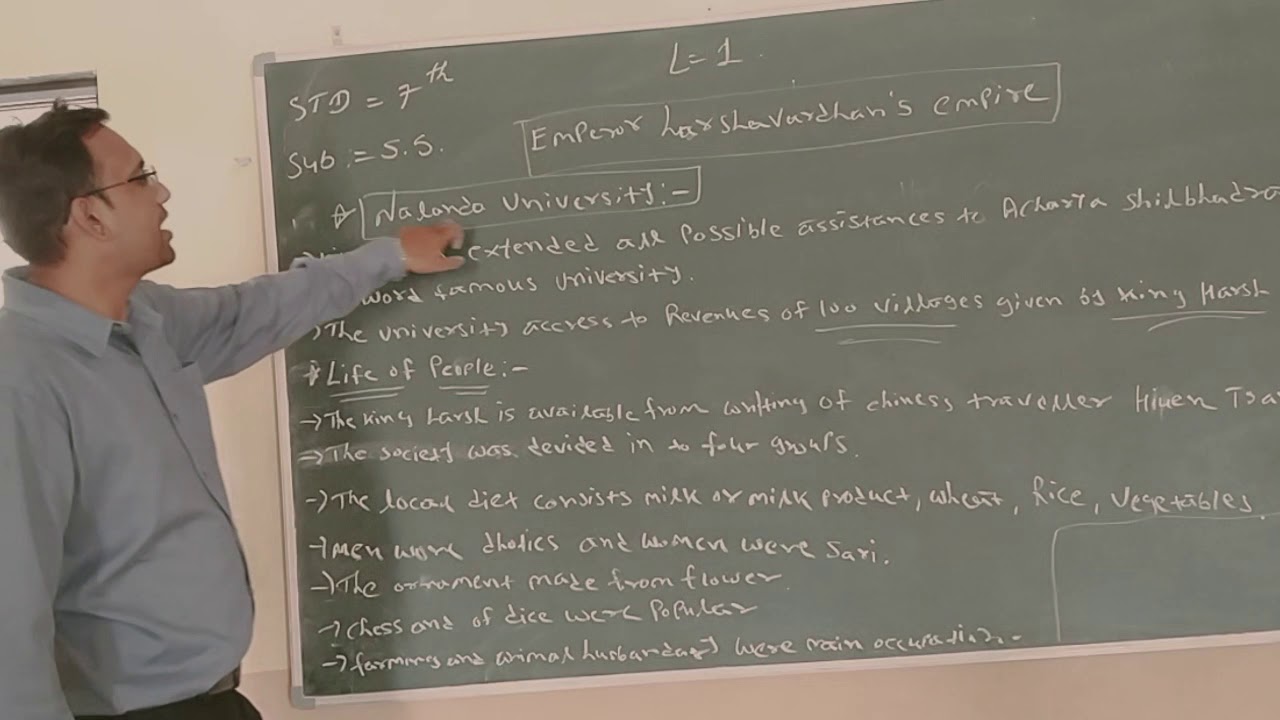 L=1.
STD = 7th
Emperor harshavardhan's empire
Sub := S.S.
Nalanda University:-
extended all possible assistances to Acharya Shilbhadra
word famous University.
→The University access to Revenues of 100 villages given by King Harsh
* Life of People:-
→The King Harsh is available from writing of chiness traveller Hiuen Tsa
→The society was devided in to four groups.
→The local diet consists milk or milk product, wheat, Rice, vegetables.
→men wore dhoties and women were Sari.
→The ornament made from flower.
→chess and of dice were popular
→farming and animal husbandary were main occupation.